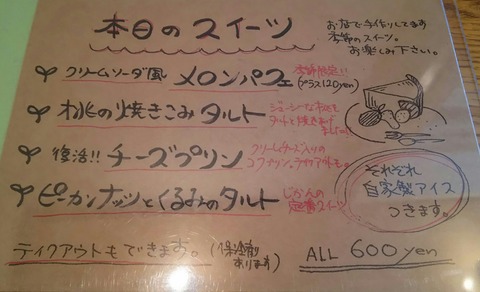 本日のスイーツ
お店で手作りしてます
季節のスイーツ。
お楽しみ下さい。
クリームソーダ風 メロンパフェ
季節限定!!
(プラス120yen)
桃の焼きこみタルト
ジューシーな桃を
タルトと焼きあげ
ました!!
復活!! チーズプリン
クリームチーズ入りの
テイクアウト
ピーカンナッツとくるみのタルト
じかんの
定番スイーツ
それぞれ
自家製アイス
つきます。
テイクアウトもできます。(保冷剤
あります)
ALL 600yen